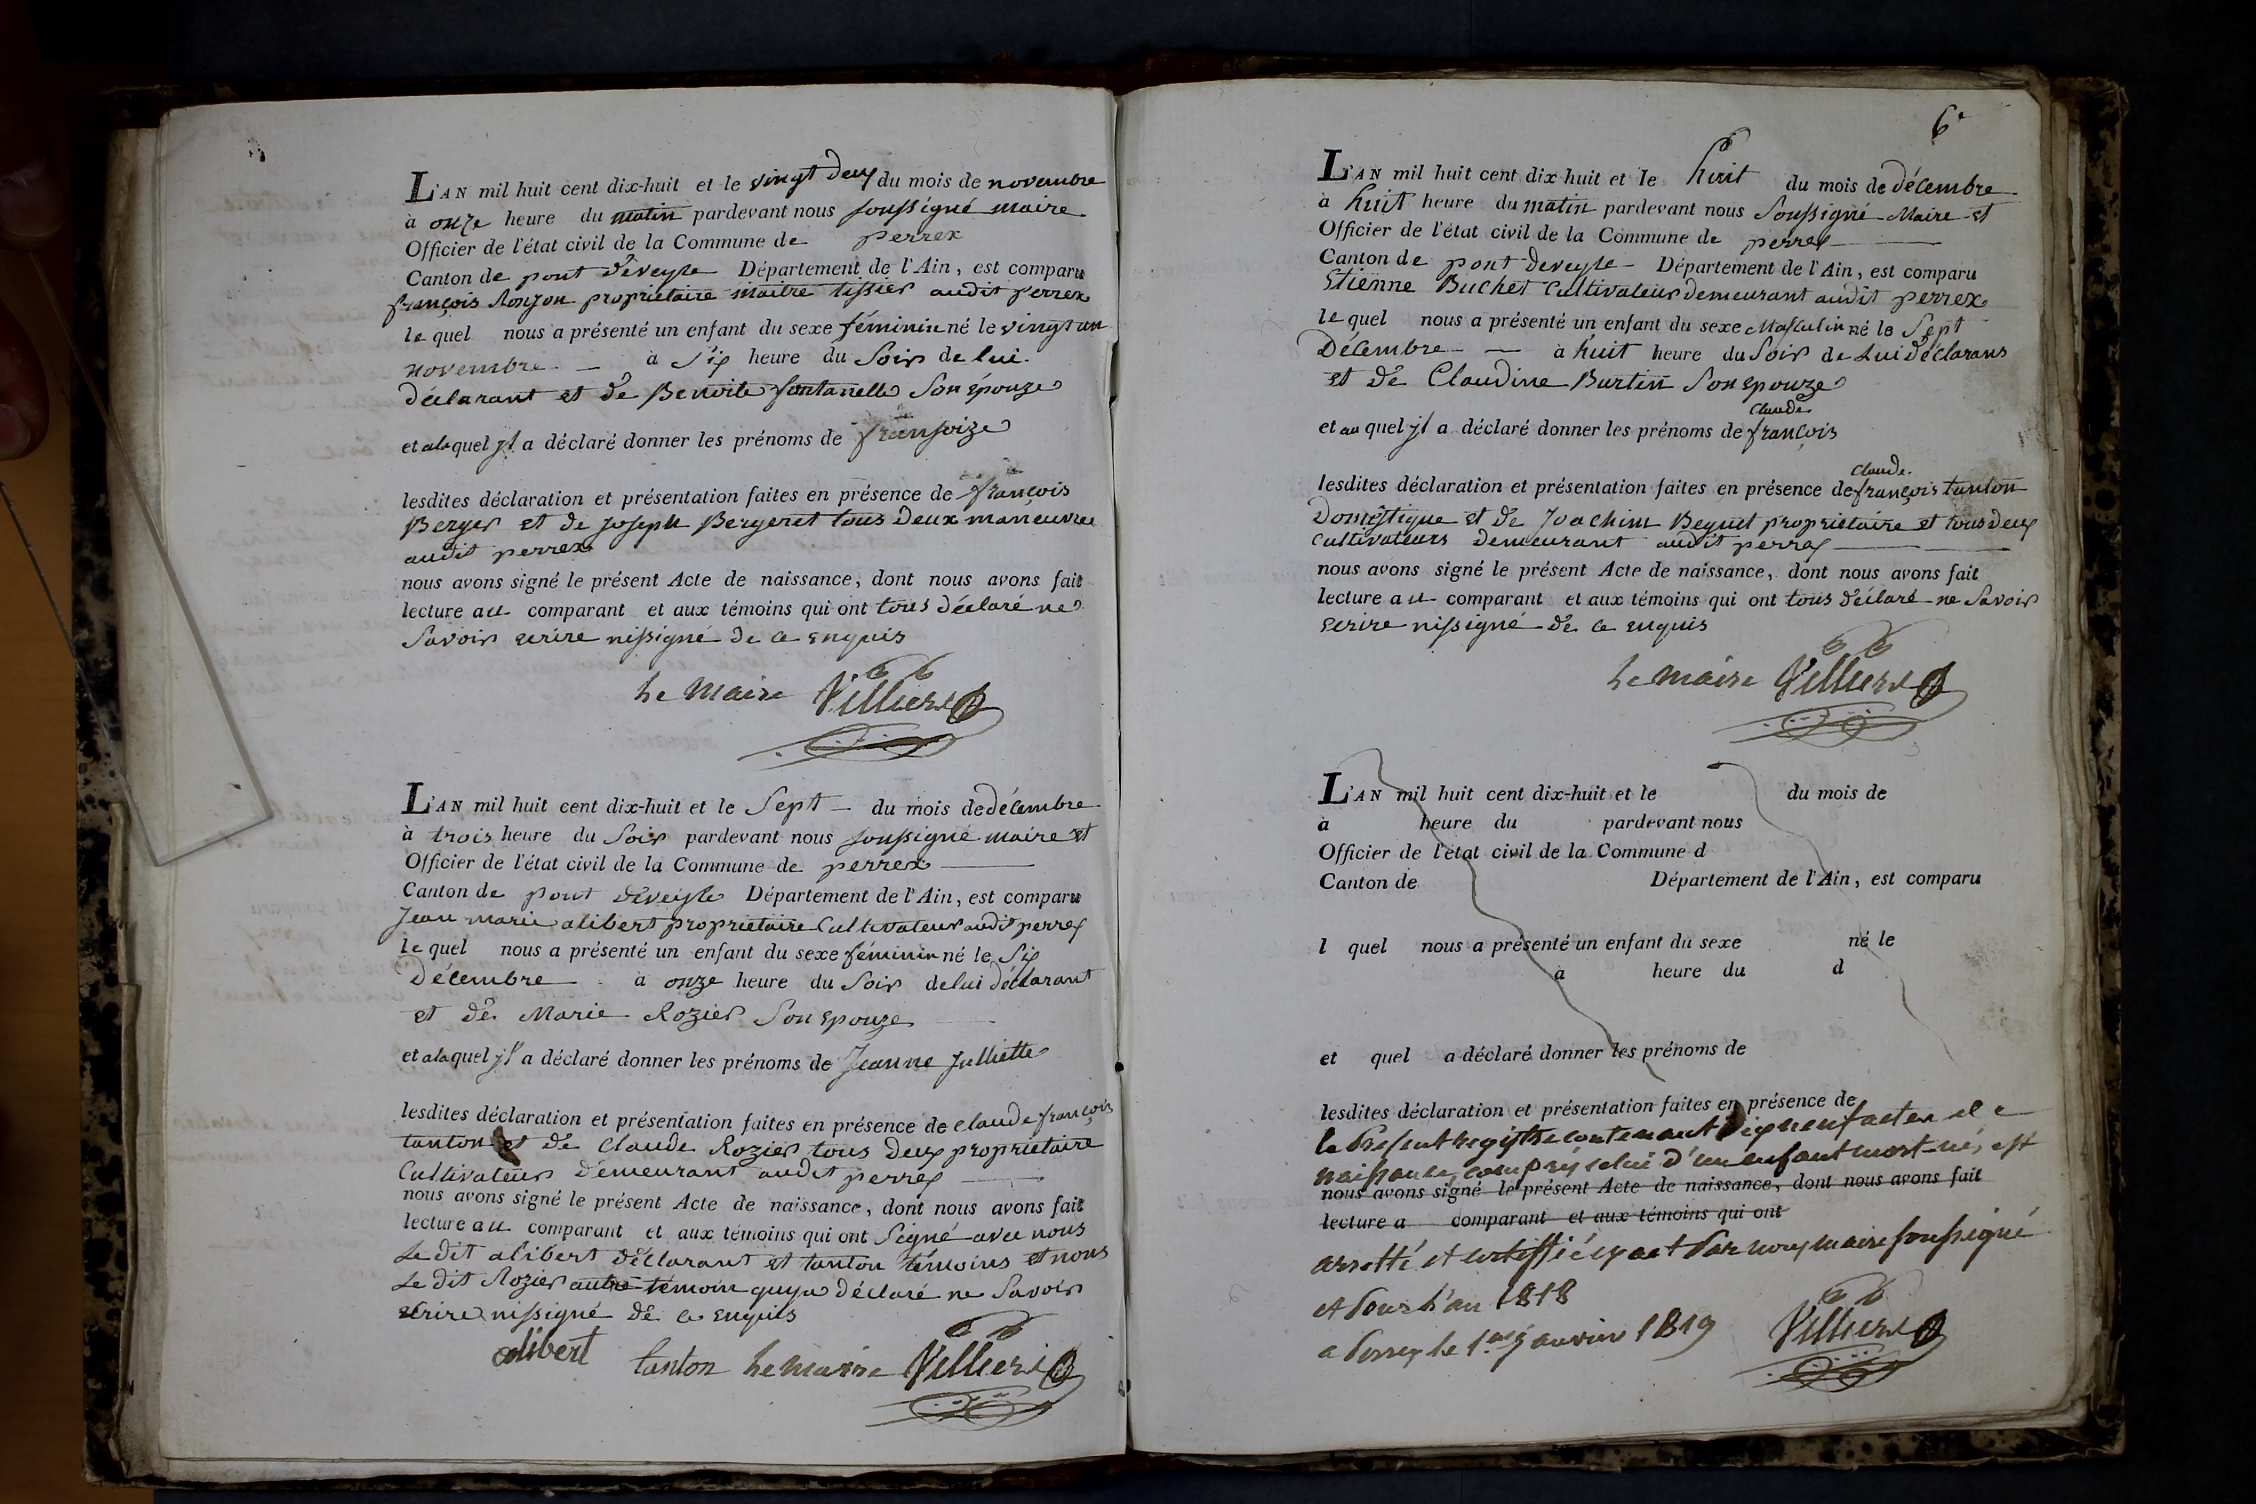 L'AN mil huit cent dix-huit et le vingt deux du mois de novembre
à onze heure du matin pardevant nous soussigné maire
Officier de l'état civil de la Commune de perrex
Canton de pont deveyle Département de l'Ain, est comparu
françois Ronzon propriétaire maitre tissier audit perrex
le quel nous a présenté un enfant du sexe féminin né le vingt un
novembre à six heure du soir de lui
déclarant et de Benoite fontanelle son épouze
et ala quel yl a déclaré donner les prénoms de fransoize
lesdites déclaration et présentation faites en présence de françois
Berger et de joseph Bergeret tous deux maneuvre
audit perrex
nous avons signé le présent Acte de naissance, dont nous avons fait
lecture au comparant et aux témoins qui ont tous déclaré ne
savoir ecrire nissigné de ce enquis
le maire Villiers
L'AN mil huit cent dix-huit et le sept du mois de décembre
à trois heure du soir pardevant nous soussigné maire et
Officier de l'état civil de la Commune de perrex
Canton de pont deveyle Département de l'Ain, est comparu
Jean marie alibert propriétaire cultivateur audit perrex
le quel nous a présenté un enfant du sexe féminin né le six
décembre à onze heure du soir de lui déclarant
et de Marie Rozier son epouze
et ala quel yl a déclaré donner les prénoms de Jeanne julliette
lesdites déclaration et présentation faites en présence de claude françois
tanton et de claude Rozier tous deux propriétaire
cultivateur demeurant audit perrex
nous avons signé le présent Acte de naissance, dont nous avons fait
lecture au comparant et aux témoins qui ont signé avec nous
Le dit alibert déclarant et tanton témoins et nous
Le dit Rozier autre temoin quya déclaré ne savoir
ecrire nissigné de ce enquis
alibert tanton le maire Villiers
6e
L'AN mil huit cent dix-huit et le huit du mois de décembre
à huit heure du matin pardevant nous soussigné Maire et
Officier de l'état civil de la Commune de perrex
Canton de pont deveyle Département de l'Ain, est comparu
Etienne Buchet cultivateur demeurant audit perrex
le quel nous a présenté un enfant du sexe Masculin né le sept
décembre à huit heure du soir de lui déclarans
et de Claudine Burtin son epouze
claude
et au quel yl a déclaré donner les prénoms de françois
claude
lesdites déclaration et présentation faites en présence de françois tanton
domestique et de joachim Beguet propriétaire et tous deux
cultivateurs demeurant audit perrex
nous avons signé le présent Acte de naissance, dont nous avons fait
lecture au comparant et aux témoins qui ont tous déclaré ne savoir
ecrire nissigné de ce enquis
le maire Villiers
L'AN mil huit cent dix-huit et le du mois de
à heure du pardevant nous
Officier de l'état civil de la Commune d
Canton de Département de l'Ain, est comparu
l quel nous a présenté un enfant du sexe né le
à heure du d
et quel a déclaré donner les prénoms de
lesdites déclaration et présentation faites en présence de
le present registre contenant dixneuf actes de
naissance, compris celui d'un enfant mort-né, est
nous avons signé le présent Acte de naissance, dont nous avons fait
lecture a comparant et aux témoins qui ont
arretté et certiffié exact par nous maire soussigné
et pour l'an 1818
a perrex le 1er janvier 1819 Villiers